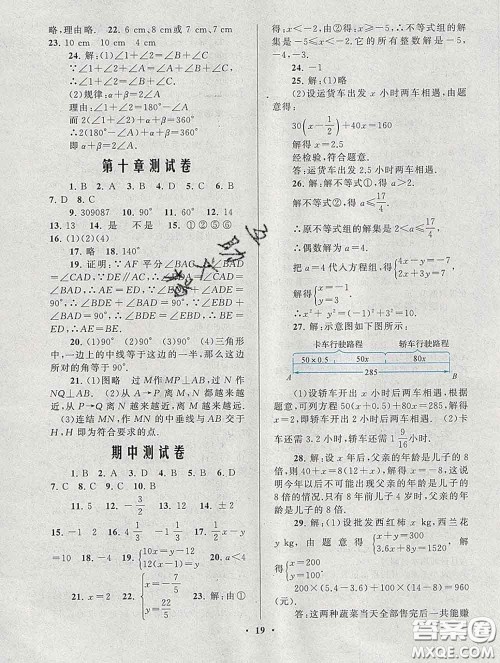 略,理由略. 22. 6 cm,8 cm或 7 cm,7 cm
23. 10 cm 10 cm 4 cm
24. 解:(1)∠1+∠2=∠B+∠C.理由:
∵∠1+∠2+∠A=∠B+∠C+∠A,
∴∠1+∠2=∠B+∠C.
(2)规律:α+β=2∠A
理由:∠1+∠2=180°-∠A
而 2(∠1+∠2)+α+β=360°
∴2(180°-∠A)+α+β=360°
即:α+β=2∠A.
第十章测试卷
1. B 2. A 3. D 4. C 5. A 6. B
7. D 8. C
9. 309087 10. 90° 11. 40° 12. 4
13. 13 14. 是 不是 15. ①②⑤⑥
16. (1)(2)(4)
17. 略 18. 140°
19. 证明:∵AF 平分∠BAC,∴∠BAD=
∠CAD/∵DE∥AC,∴∠EDA=∠CAD=
∠BAD,∴AE=ED,∵BD⊥AD,∴∠ADB
=90°,∴∠BDE+∠BAD=90°,∴∠EBD+
∠BAD=90°,∴∠BDE=∠EBD,∴BE=
ED,∴AE=BE.
20. (1)90° (2)90° (3)90° (4)三角形
中,一边上的中线等于这边的一半,那么第三
边所对的角等于90°.
21. (1)图略 过 M 作 MP⊥AB,过 N 作
NQ⊥AB. (2)从 A→P 离 M、N 都越来越
近,从 P→Q 离 M 越来越远,离 N 越来越近.
(3)连结 MN,作 MN 的中垂线与 AB 交于
H,H 即为符合要求的点.
期中测试卷
1. B 2. C 3. C 4. B 5. C 6. B 7. D
8. B 9. D 10. C
11. 5 12. 10 13. -3/2 14. x≤-1/2
15. -1 2 16. 4 -1 1/3 17. -3/2 18. ①②
④ 19. {10x=y-12 {9x=y+12 20. a<4
21. x≤2 22. {x=-7/5 y=-22/5 23. 解:由①
得:x<-2.由②得:x≥-5.∴不等式组的解
集是-5≤x<-2.它的所有整数解是-5,
-4,-3.
24. -1
25. 解:(1)略
(2)设运货车出发 x 小时两车相遇,由题
意得:
30(x-1/2)+40x=160
解得 x=2.5
经检验,符合题意.
答:运货车出发 2.5 小时两车相遇.
26. 解:解不等式①得 a>2.
解不等式②得 a≤17/4
∴原不等式组的解集是 2<a≤17/4
∴偶数解为 a=4.
∴把 a=4 代入方程组,得{4x-y=-7 2x+3y=7
解得{x=-1 y=3
∴x²+y²=(-1)²+3²=10.
27. 解:示意图如下图所示:
卡车行驶路程 轿车行驶路程
50×0.5 50x 80x
A 285 B
(1)设轿车开出 x 小时后两车相遇,根据
题意,可列方程 50(x+0.5)+80x=285. (2)卡
车还需开 3.2 小时,轿车还需开 1 9/16 小时.
28. 解:设 x 年后,父亲的年龄是儿子的
8 倍,根据题意得:40+x=8(12+x),解得:
x=-8. 答:8 年前父亲的年龄是儿子年龄的
8 倍的情况,如果父子年龄 4 岁时,父亲的年
龄是儿子的 8 倍.
29. 解:(1)设批发西红柿 x kg,西兰花
y kg,由题意得{x+y=300 3.6x+8y=1520
解得{x=200 y=100
200×(5.4-3.6)+100×(14-8)=960
(元).
答:这两种蔬菜当天全部售完后一共能赚
· 19 ·
答案圈
MXQE.COM